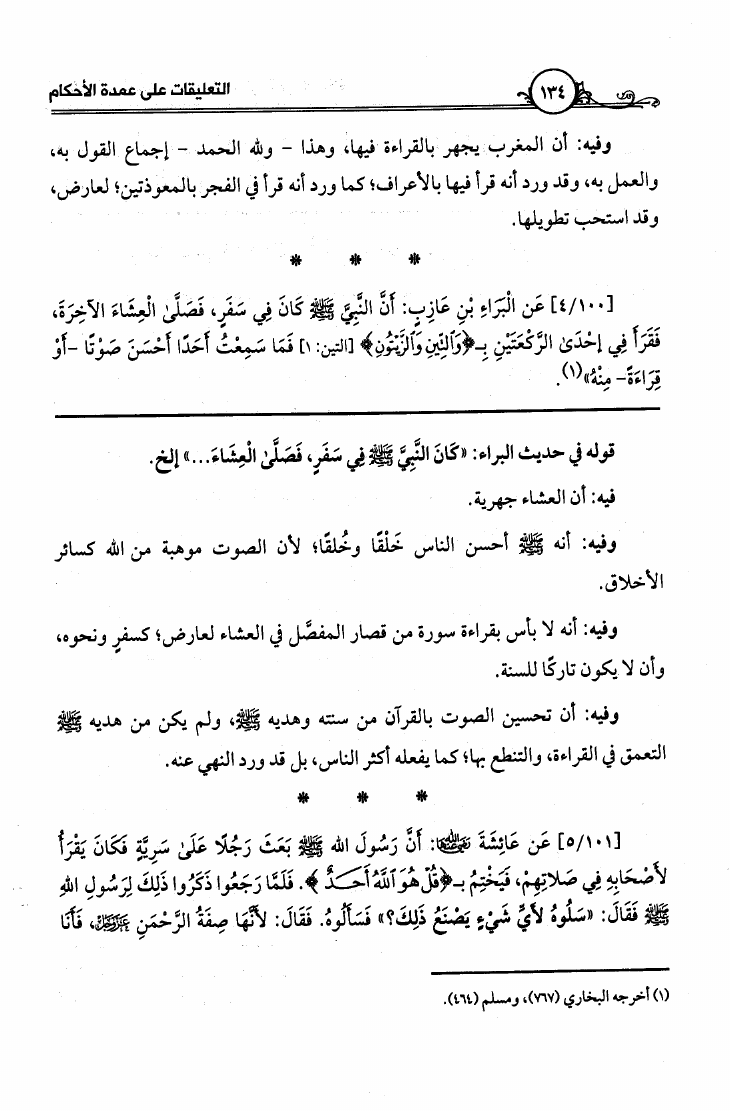 ١٣٤
التعليقات على عمدة الأحكام
وفيه: أن المغرب يجهر بالقراءة فيها، وهذا - ولله الحمد - إجماع القول به،
والعمل به، وقد ورد أنه قرأ فيها بالأعراف؛ كما ورد أنه قرأ في الفجر بالمعوذتين؛ لعارض،
وقد استحب تطويلها.
* * *
[٤/١٠٠] عَن الْبَرَاءِ بْنِ عَازِبٍ: أَنَّ النَّبِيَّ ﷺ كَانَ فِي سَفَرٍ، فَصَلَّىٰ الْعِشَاءَ الآخِرَةَ،
فَقَرَأَ فِي إِحْدَىٰ الرَّكْعَتَيْنِ بِـ﴿وَٱلتِّينِ وَٱلزَّيْتُونِ﴾ [التين: ١] فَمَا سَمِعْتُ أَحَدًا أَحْسَنَ صَوْتًا -أَوْ
قِرَاءَةً- مِنْهُ»(١).
قوله في حديث البراء: «كَانَ النَّبِيَّ ﷺ فِي سَفَرٍ، فَصَلَّىٰ الْعِشَاءَ...» إلخ.
فيه: أن العشاء جهرية.
وفيه: أنه ﷺ أحسن الناس خَلْقًا وخُلقًا؛ لأن الصوت موهبة من الله كسائر
الأخلاق.
وفيه: أنه لا بأس بقراءة سورة من قصار المفصَّل في العشاء لعارض؛ كسفرٍ ونحوه،
وأن لا يكون تاركًا للسنة.
وفيه: أن تحسين الصوت بالقرآن من سنته وهديه ﷺ، ولم يكن من هديه ﷺ
التعمق في القراءة، والتنطع بها؛ كما يفعله أكثر الناس، بل قد ورد النهي عنه.
* * *
[٥/١٠١] عَن عَائِشَةَ رَضِيَ اللَّهُ عَنْهَا: أَنَّ رَسُولَ الله ﷺ بَعَثَ رَجُلًا عَلَىٰ سَرِيَّةٍ فَكَانَ يَقْرَأُ
لأَصْحَابِهِ فِي صَلاتِهِمْ، فَيَخْتِمُ بِـ﴿قُلْ هُوَ ٱللَّهُ أَحَدٌ﴾. فَلَمَّا رَجَعُوا ذَكَرُوا ذَلِكَ لِرَسُولِ اللهِ
ﷺ فَقَالَ: «سَلُوهُ لأَيِّ شَيْءٍ يَصْنَعُ ذَلِكَ؟» فَسَأَلُوهُ. فَقَالَ: لأَنَّهَا صِفَةُ الرَّحْمَنِ عَزَّوَجَلَّ، فَأَنَا
(١) أخرجه البخاري (٧٦٧)، ومسلم (٤٦٤).